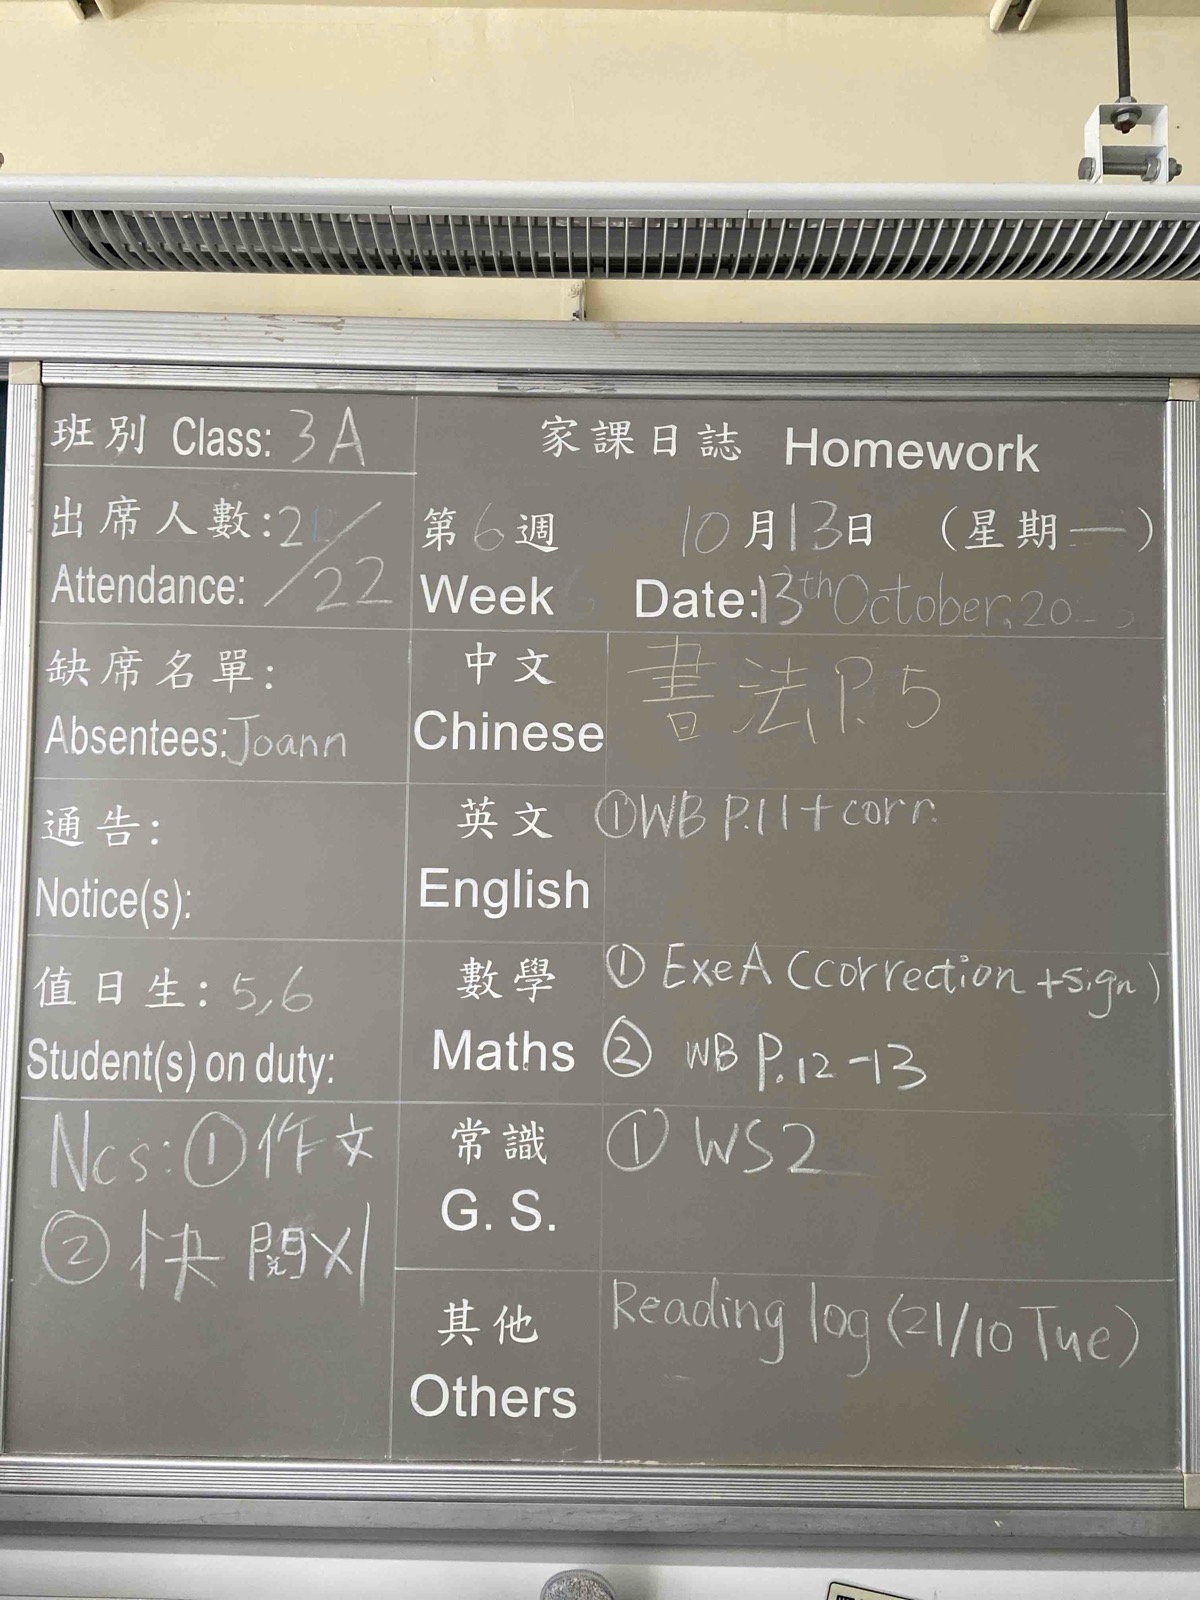 班別 Class: 3A
家課日誌 Homework
出席人數: 21/22
Attendance:
第6週 10月13日 (星期一)
Week 6 Date: 13th October, 20
缺席名單:
Absentees: Joann
中文 書法 P.5
Chinese
通告:
Notice(s):
英文 ① WB P.11 + corr.
English
值日生: 5,6
Student(s) on duty:
數學 ① Exe A (correction + sign)
Maths ② WB P.12-13
Ncs: ① 作文
② 快閱
常識 ① WS2
G. S.
其他 Reading log (21/10 Tue)
Others